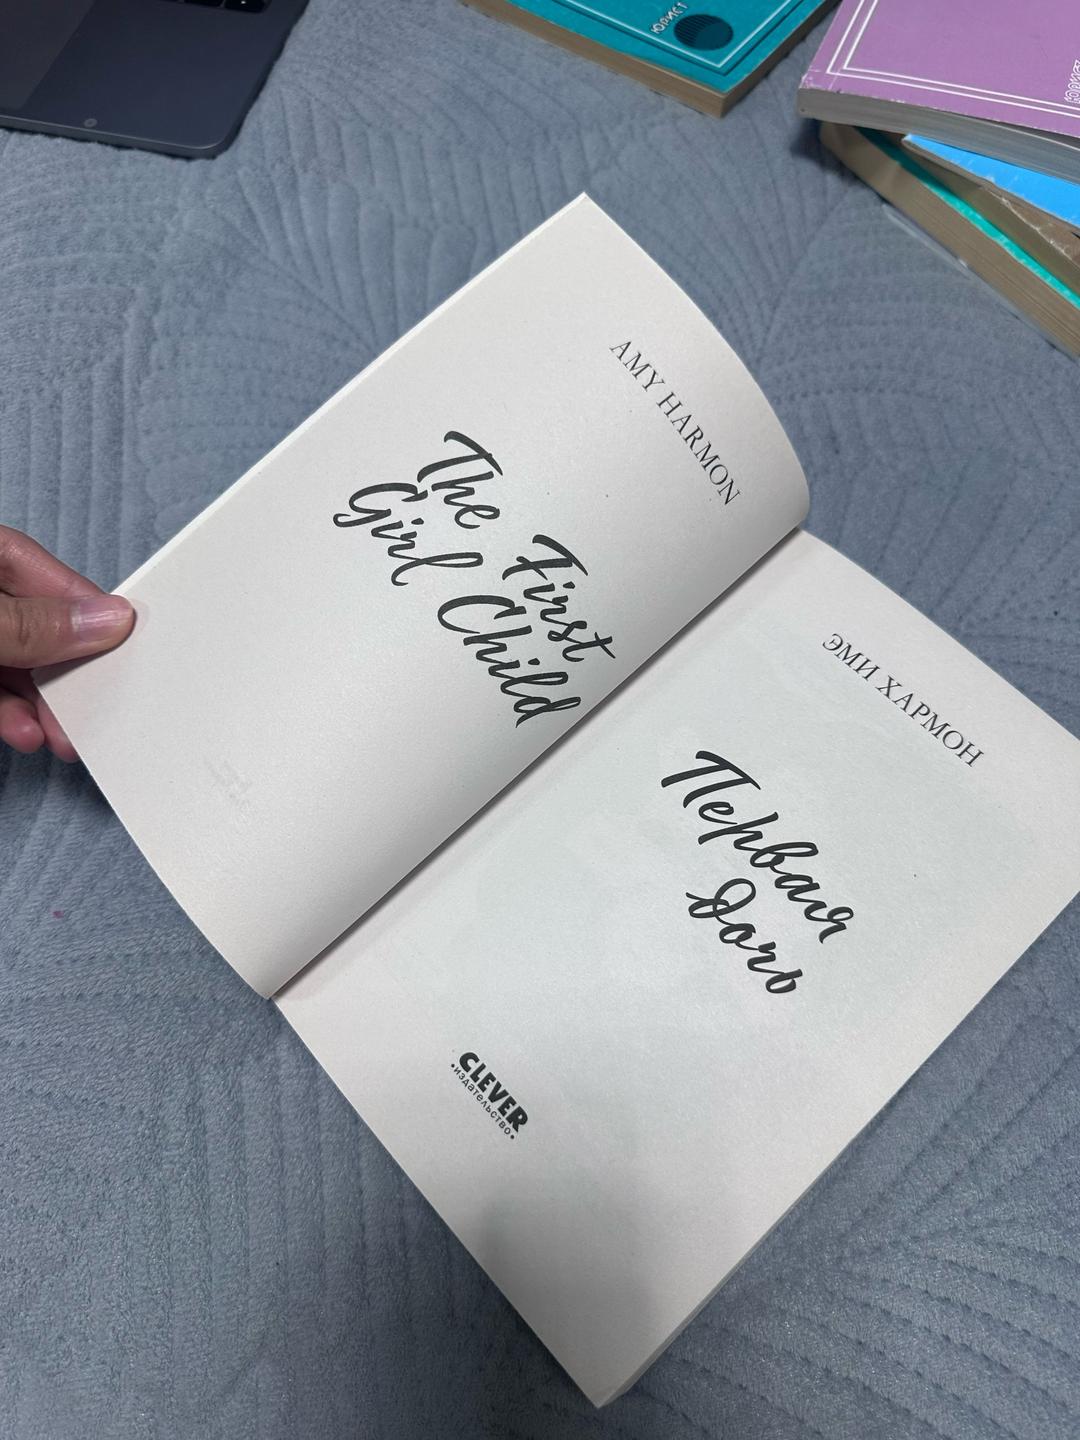 ЮРИСТ
ЮРИСТ
AMY HARMON
The First
Girl Child
ЭМИ ХАРМОН
Первая
дочь
CLEVER
•издательство•